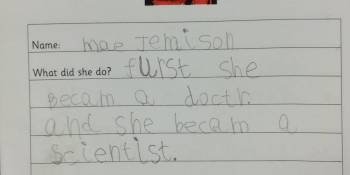 Name: mae Jemison
What did she do? fUrst she
becam a doctr.
and she becam a
scientist.